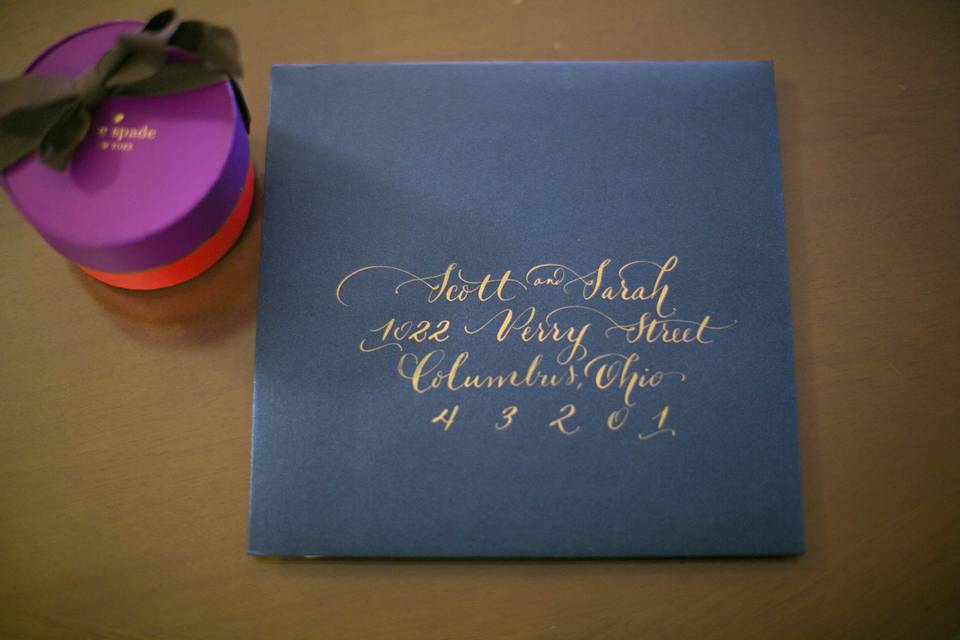 e spade
Scott and Sarah
1022 Perry Street
Columbus, Ohio
4 3 2 0 1